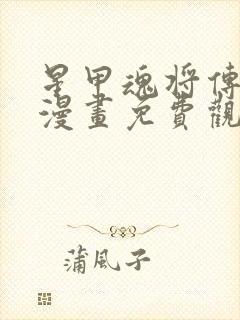 星甲魂将傳
漫畫免費觀
蒲風子